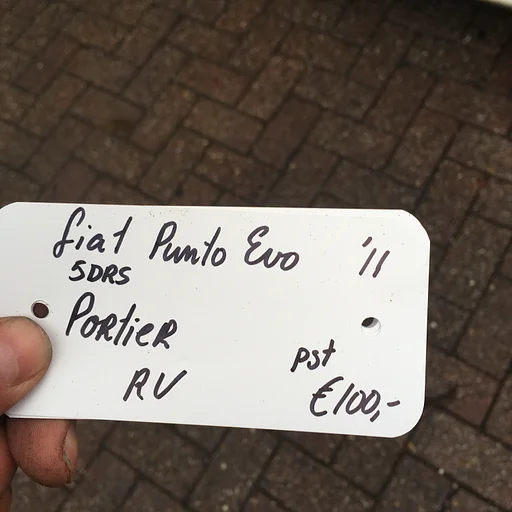 fiat Punto Evo '11
5DRS
PORtieR
RV
pst
€100,-